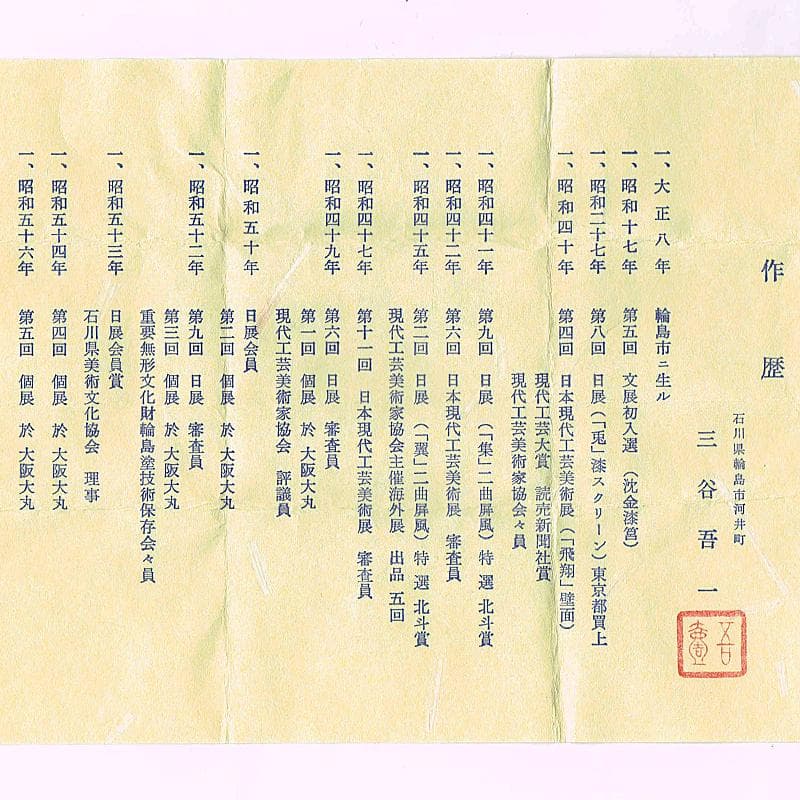 作歴
石川県輪島市河井町
三谷吾一
吾壱
一、大正八年 輪島市ニ生ル
一、昭和十七年 第五回 文展初入選 (沈金漆筥)
一、昭和二十七年 第八回 日展(「兎」漆スクリーン)東京都買上
一、昭和四十年 第四回 日本現代工芸美術展(「飛翔」壁面)
現代工芸大賞 読売新聞社賞
現代工芸美術家協会々員
一、昭和四十一年 第九回 日展 (「集」二曲屏風) 特選 北斗賞
一、昭和四十二年 第六回 日本現代工芸美術展 審査員
一、昭和四十五年 第二回 日展 (「翼」二曲屏風) 特選 北斗賞
現代工芸美術家協会主催海外展 出品 五回
一、昭和四十七年 第十一回 日本現代工芸美術展 審査員
一、昭和四十九年 第六回 日展 審査員
第一回 個展 於 大阪大丸
現代工芸美術家協会 評議員
一、昭和五十年 日展会員
第二回 個展 於 大阪大丸
一、昭和五十二年 第九回 日展 審査員
第三回 個展 於 大阪大丸
重要無形文化財輪島塗技術保存会々員
一、昭和五十三年 日展会員賞
石川県美術文化協会 理事
一、昭和五十四年 第四回 個展 於 大阪大丸
一、昭和五十六年 第五回 個展 於 大阪大丸